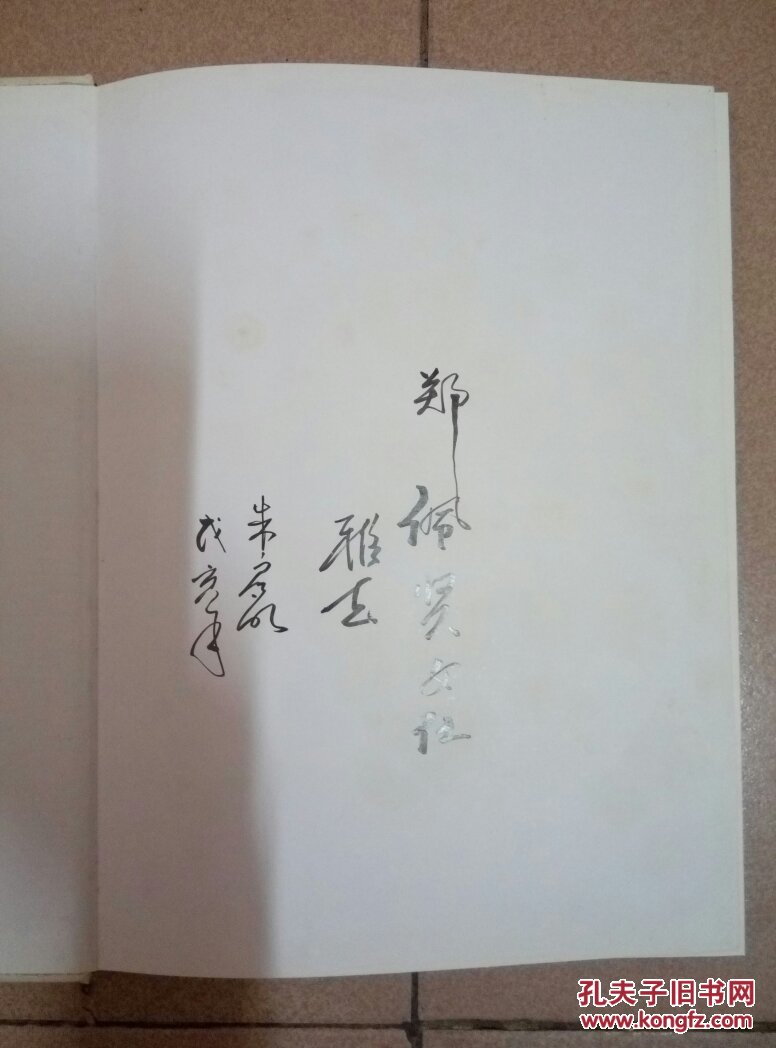 郑佩贤女社
雅志
朱
亥年
孔夫子旧书网
www.kongfz.com